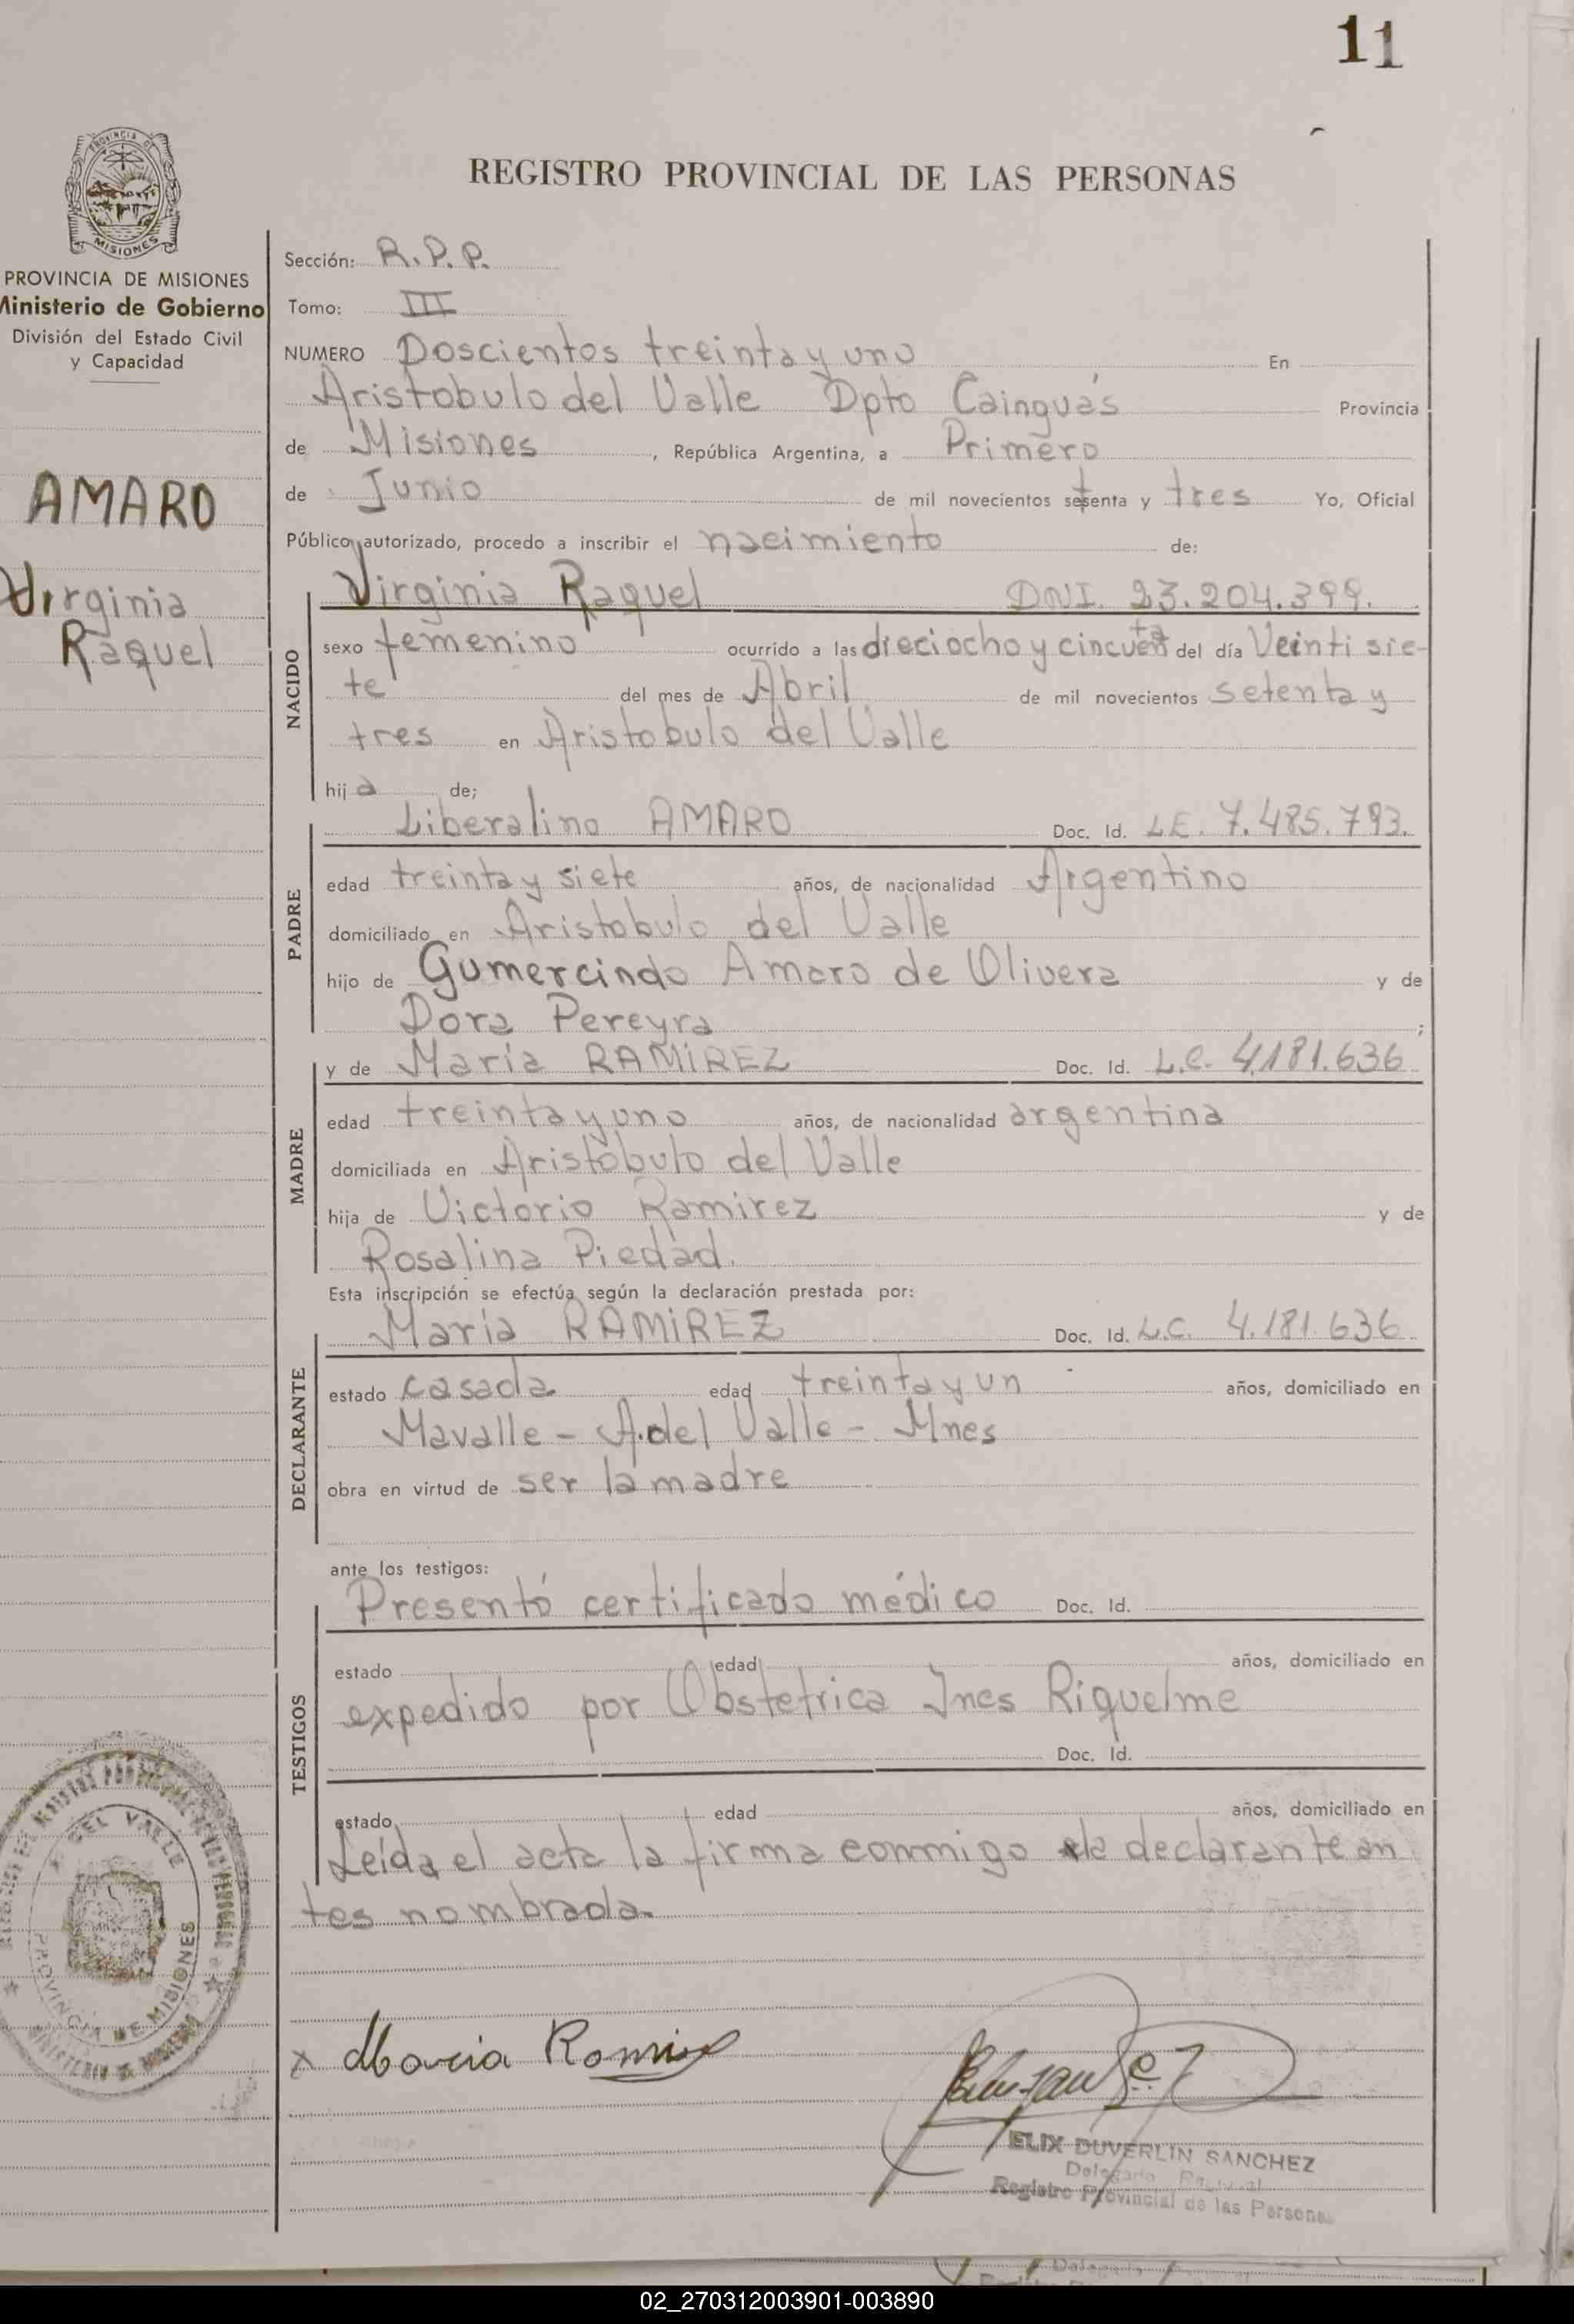 11
REGISTRO PROVINCIAL DE LAS PERSONAS
PROVINCIA DE MISIONES
PROVINCIA DE MISIONES
Ministerio de Gobierno
División del Estado Civil
y Capacidad
AMARO
Virginia
Raquel
Sección: R.P.P.
Tomo: III
NUMERO Doscientos treinta y uno En
Aristobulo del Valle Dpto Cainguás Provincia
de Misiones, República Argentina, a Primero
de Junio de mil novecientos setenta y tres Yo, Oficial
Público autorizado, procedo a inscribir el nacimiento de:
NACIDO
Virginia Raquel DNI. 23.204.399.
sexo femenino ocurrido a las dieciocho y cincuenta del día Veinti sie-
te del mes de Abril de mil novecientos setenta y
tres en Aristobulo del Valle
hija de;
PADRE
Liberalino AMARO Doc. Id. LE. 7.485.793.
edad treinta y siete años, de nacionalidad Argentino
domiciliado en Aristobulo del Valle
hijo de Gumercindo Amaro de Olivera y de
Dora Pereyra ;
MADRE
y de María RAMIREZ Doc. Id. L.C. 4.181.636
edad treinta y uno años, de nacionalidad argentina
domiciliada en Aristobulo del Valle
hija de Victorio Ramirez y de
Rosalina Piedad.
Esta inscripción se efectúa según la declaración prestada por:
DECLARANTE
María RAMIREZ Doc. Id. L.C. 4.181.636
estado casada edad treinta y un años, domiciliado en
Mavalle - A.del Valle - Mnes
obra en virtud de ser la madre
ante los testigos:
TESTIGOS
Presentó certificado médico Doc. Id.
estado edad años, domiciliado en
expedido por Obstetrica Ines Riquelme
Doc. Id.
estado edad años, domiciliado en
Leída el acta la firma conmigo la declarante an
tes nombrada.
DEL VALLE
PROVINCIA DE MISIONES
x Maria Ramirez
ELIX DUVERLIN SANCHEZ
Registro Provincial de las Personas
02_270312003901-003890